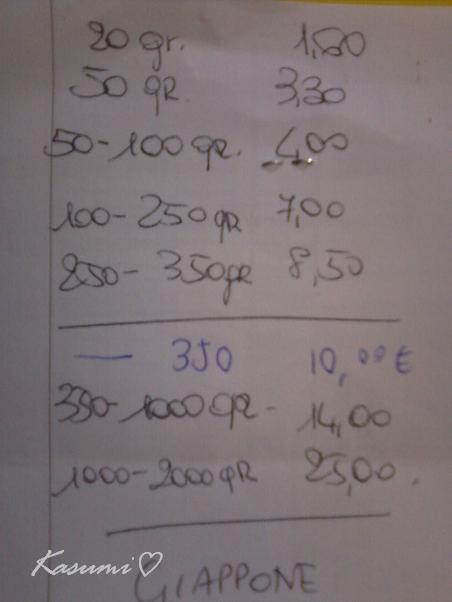 20 gr. 1,60
50 gr 3,30
50-100 gr. 4,00
100-250 gr 7,00
250-350gr 8,50
— 350 10,00 €
350-1000 gr- 14,00
1000-2000 gr 25,00.
Kasumi♡
GIAPPONE